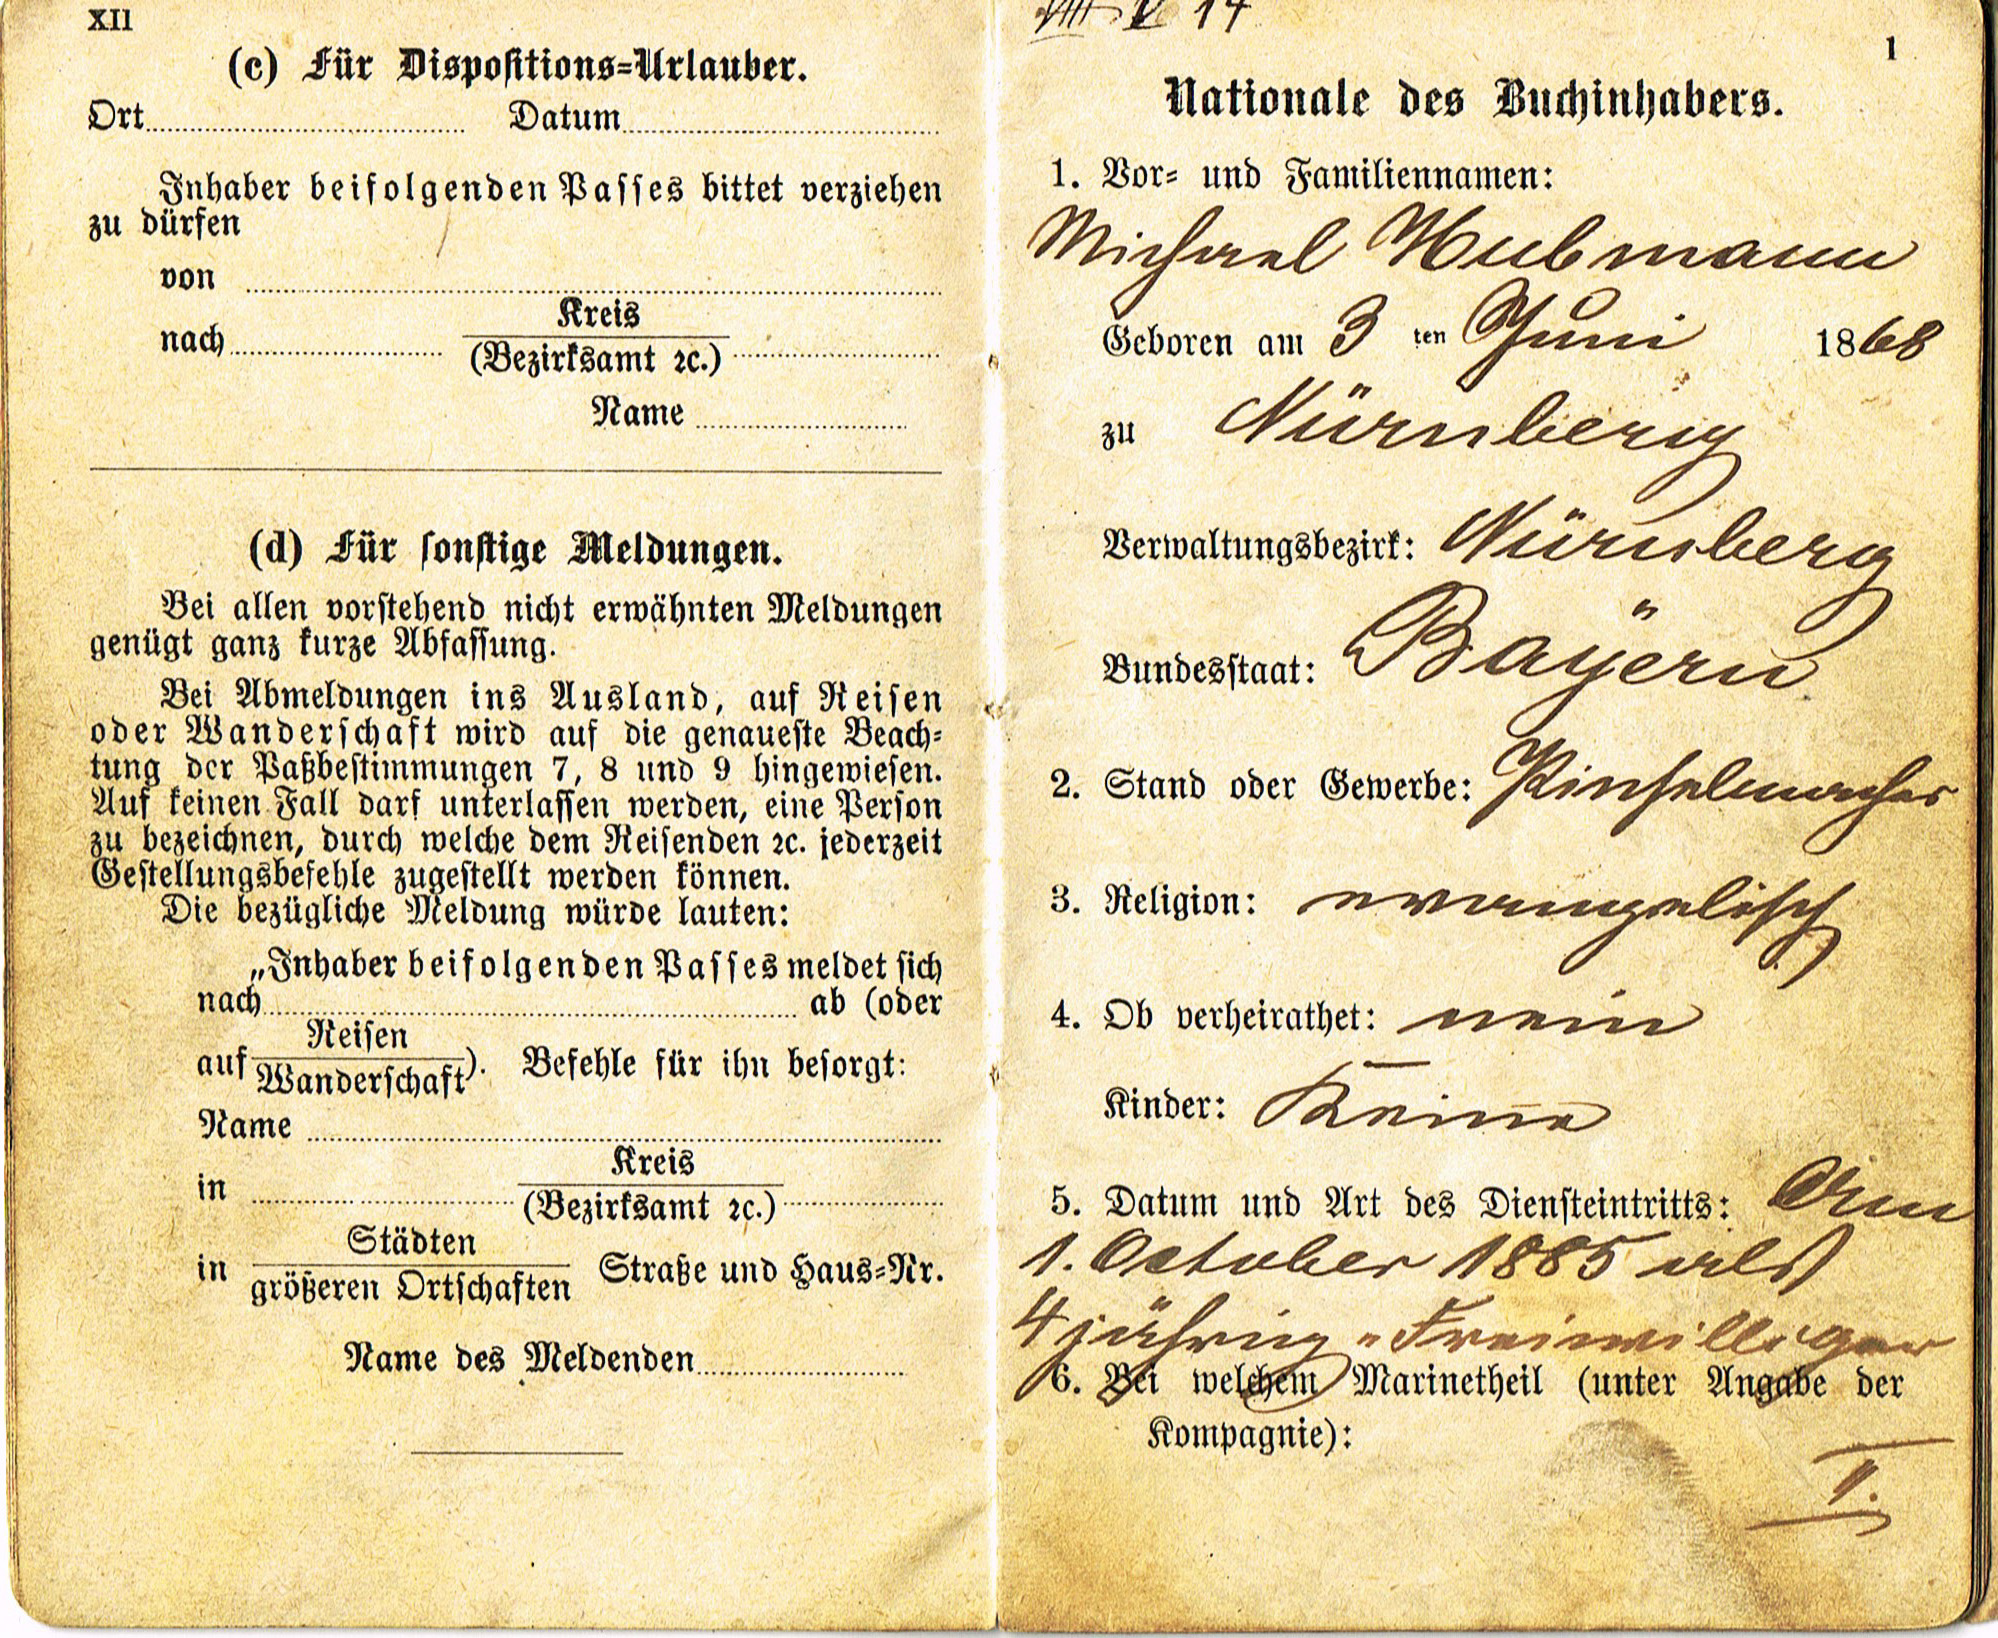 XII
(c) Für Dispositions=Urlauber.
Ort Datum
Inhaber beifolgenden Passes bittet verziehen
zu dürfen
von
nach Kreis
(Bezirksamt ꝛc.)
Name
(d) Für sonstige Meldungen.
Bei allen vorstehend nicht erwähnten Meldungen
genügt ganz kurze Abfassung.
Bei Abmeldungen ins Ausland, auf Reisen
oder Wanderschaft wird auf die genaueste Beach=
tung der Paßbestimmungen 7, 8 und 9 hingewiesen.
Auf keinen Fall darf unterlassen werden, eine Person
zu bezeichnen, durch welche dem Reisenden ꝛc. jederzeit
Gestellungsbefehle zugestellt werden können.
Die bezügliche Meldung würde lauten:
„Inhaber beifolgenden Passes meldet sich
nach ab (oder
auf Reisen
Wanderschaft). Befehle für ihn besorgt:
Name
in Kreis
(Bezirksamt ꝛc.)
in Städten
größeren Ortschaften Straße und Haus=Nr.
Name des Meldenden
VIII V 14
1
Nationale des Buchinhabers.
1. Vor= und Familiennamen:
Michael Hubmann
Geboren am 3 ten Juni 1868
zu Nürnberg
Verwaltungsbezirk: Nürnberg
Bundesstaat: Bayern
2. Stand oder Gewerbe: Pinselmacher
3. Religion: evangelisch
4. Ob verheirathet: nein
Kinder: Keine
5. Datum und Art des Diensteintritts: Am
1. October 1885 als
4jährig=Freiwilliger
6. Bei welchem Marinetheil (unter Angabe der
Kompagnie):